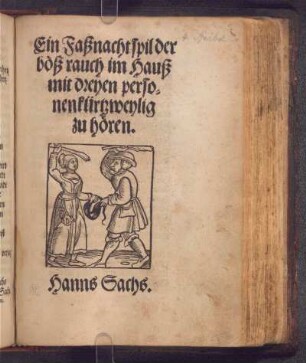 Ein Faßnacht spil der
böß rauch im Hauß
mit dreyen perso-
nen kürtzweylig
zu hören.
Hanns Sachs.